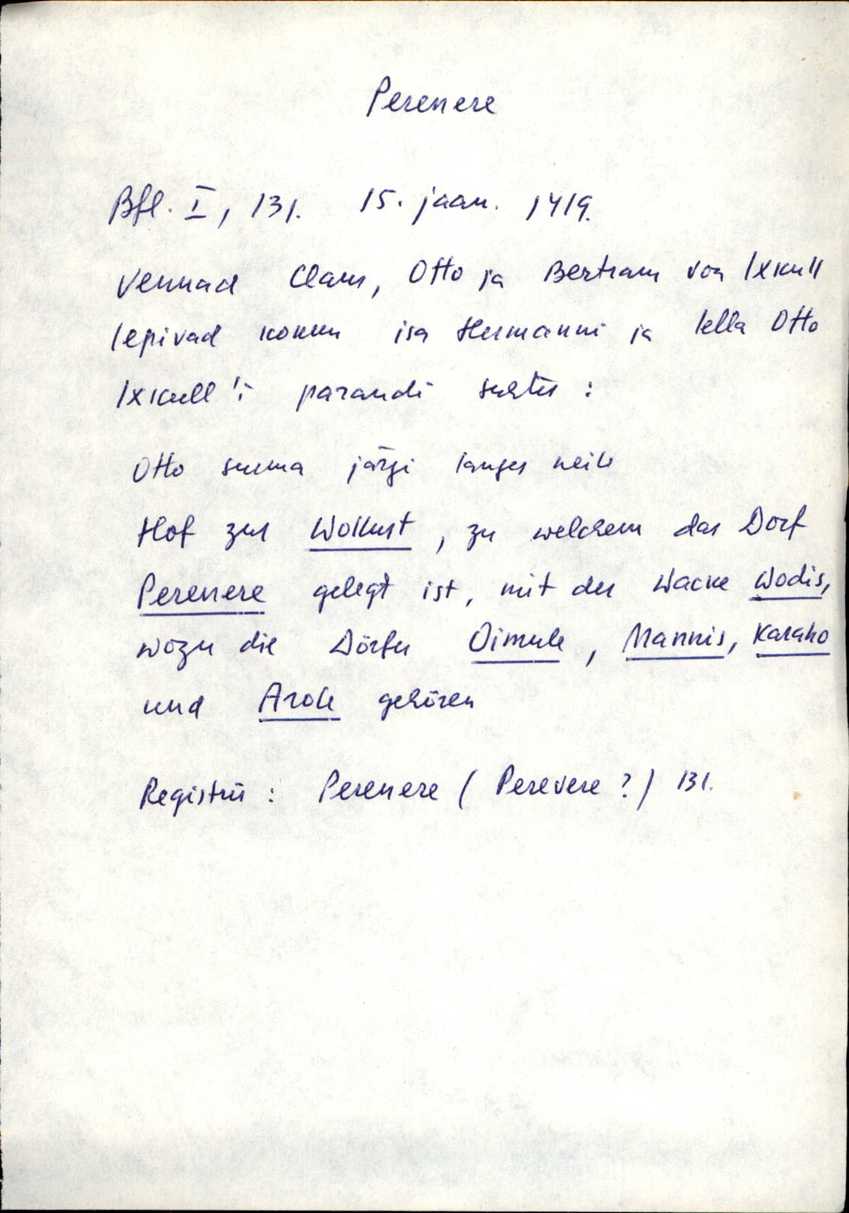 Perenere
Bfl. I, 131. 15. jaan. 1419.
Vennad Claus, Otto ja Bertram von Ixkull
lepivad kokku isa Hermanni ja lella Otto
Ixkull'i parandi suhtes:
Otto surma järgi langes neile
Hof zur Wolkust, zu welchem das Dorf
Perenere gelegt ist, mit der Wacke Wodis,
wozu die Dörfer Oimule, Mannis, Karaho
und Arole gehören
Registris: Perenere (Perevere?) 131.